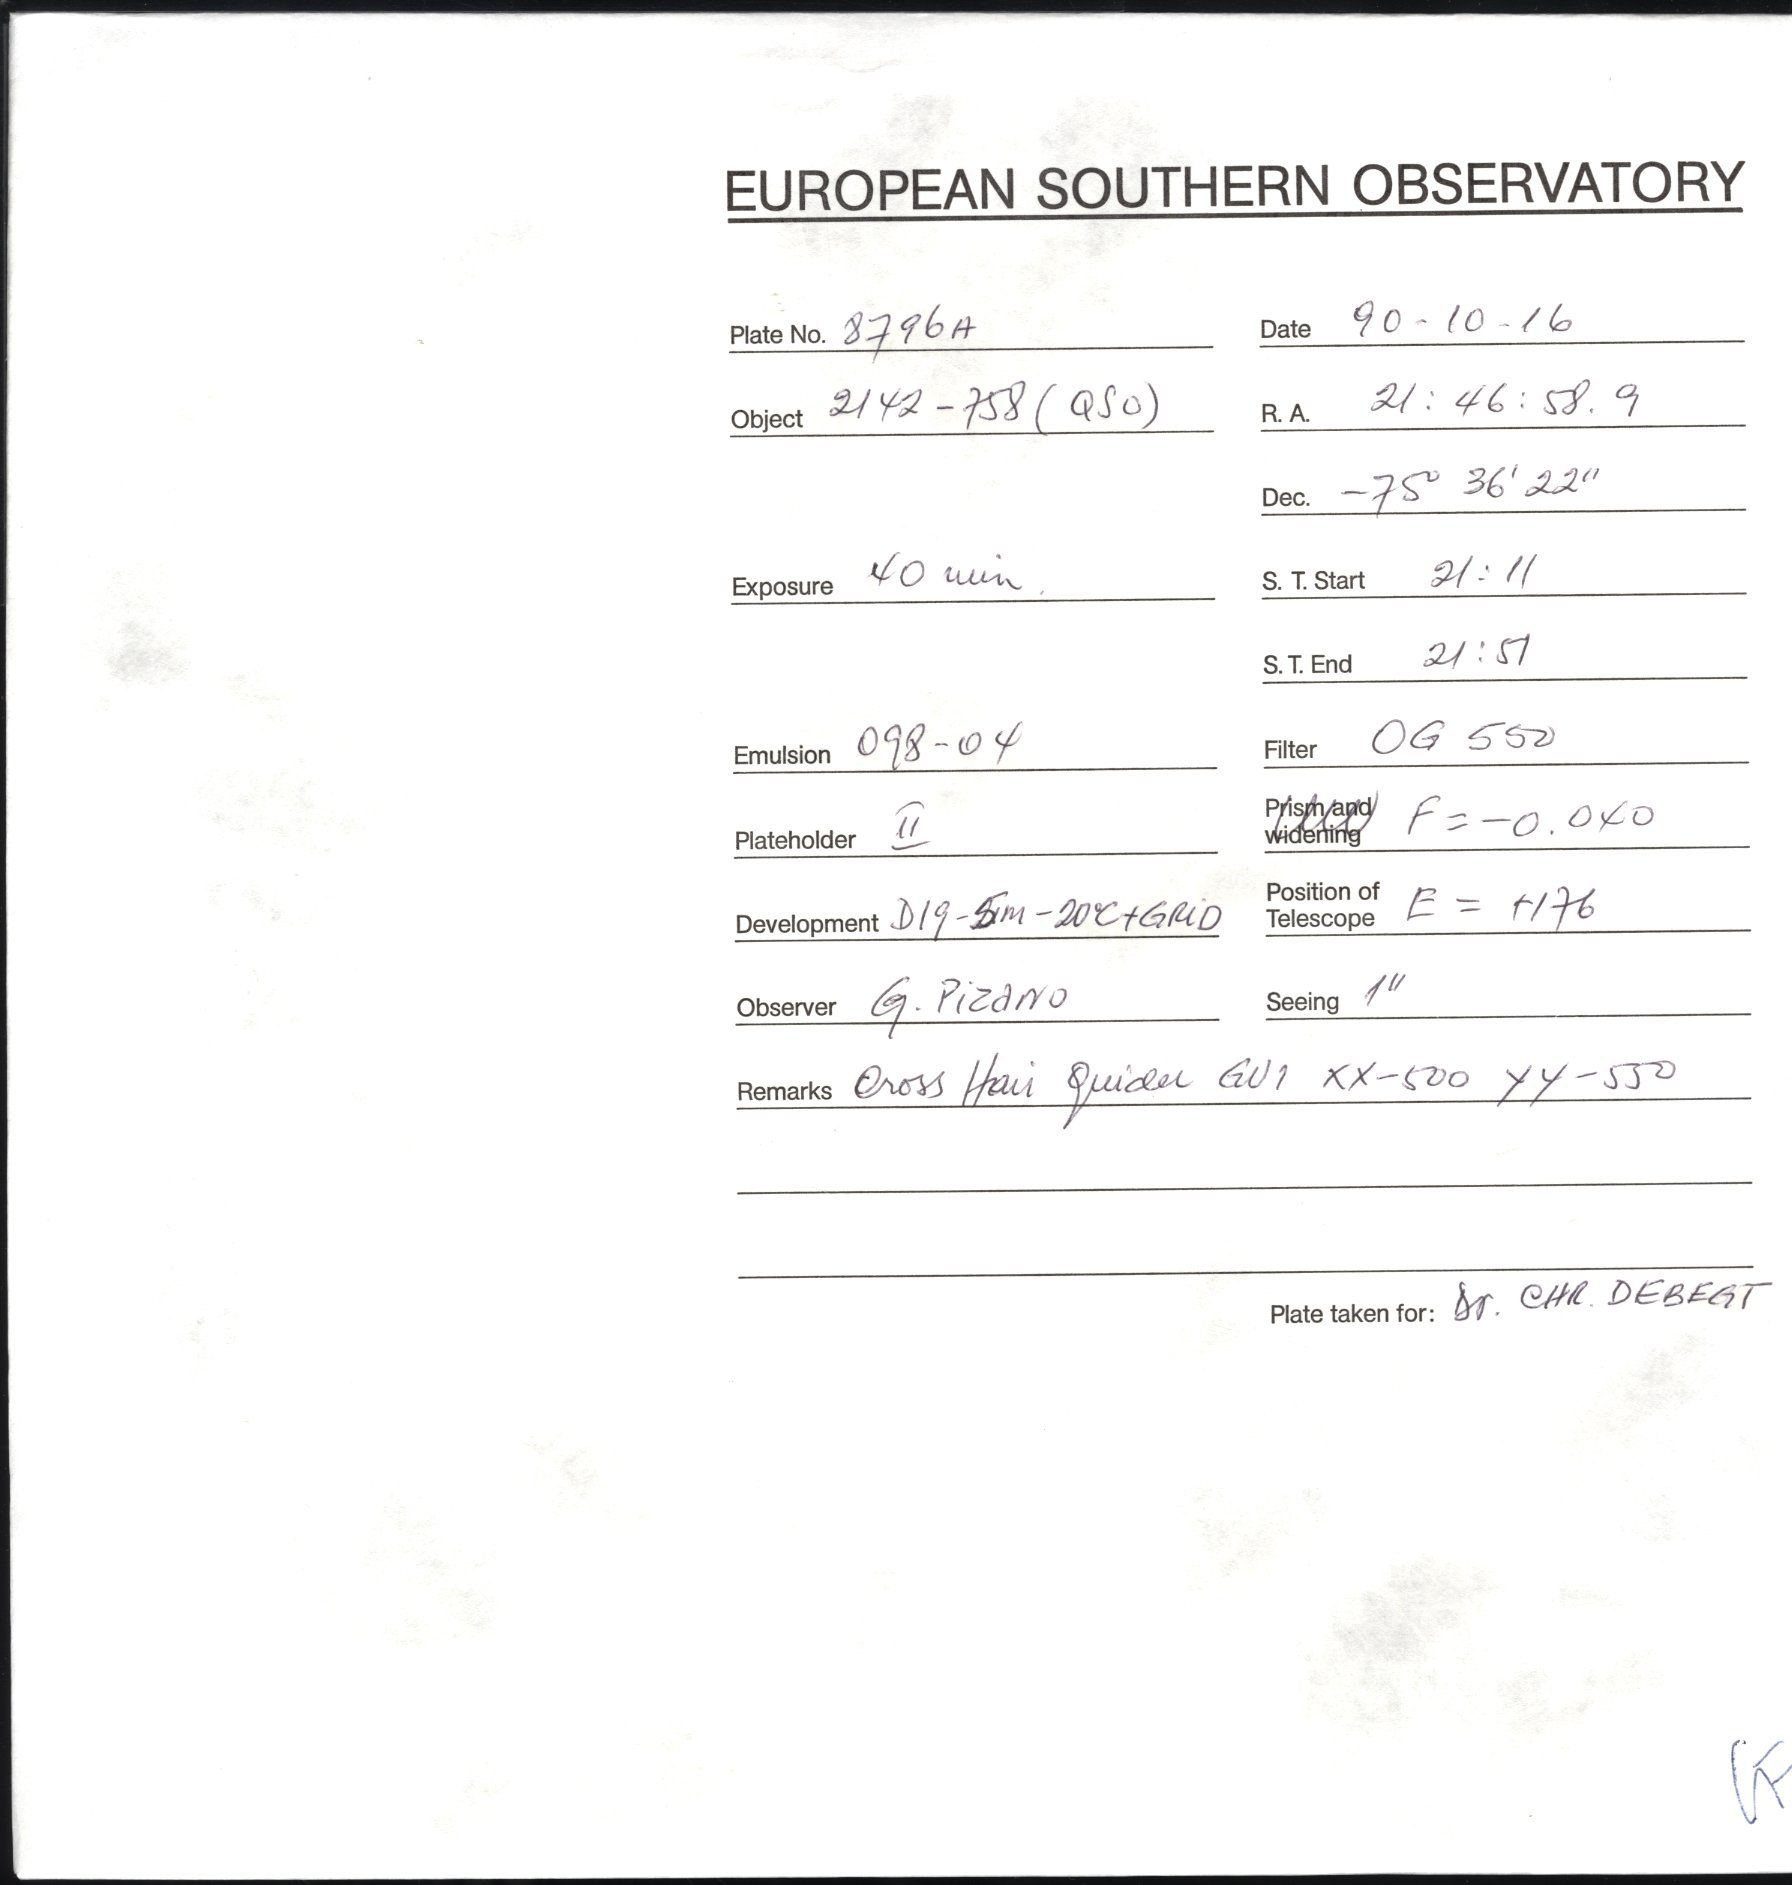 EUROPEAN SOUTHERN OBSERVATORY
Plate No. 8796A Date 90-10-16
Object 2142-758 (QSO) R. A. 21:46:58.9
Dec. -75° 36' 22"
Exposure 40 min. S. T. Start 21:11
S. T. End 21:51
Emulsion 098-04 Filter OG 550
Plateholder II Prism and widening F=-0.040
Development D19-5m-20°C+GRiD Position of Telescope E = +176
Observer G. Pizarro Seeing 1"
Remarks Cross Hair Guider GV1 XX-500 YY-550
Plate taken for: Dr. CHR. DEBEGT